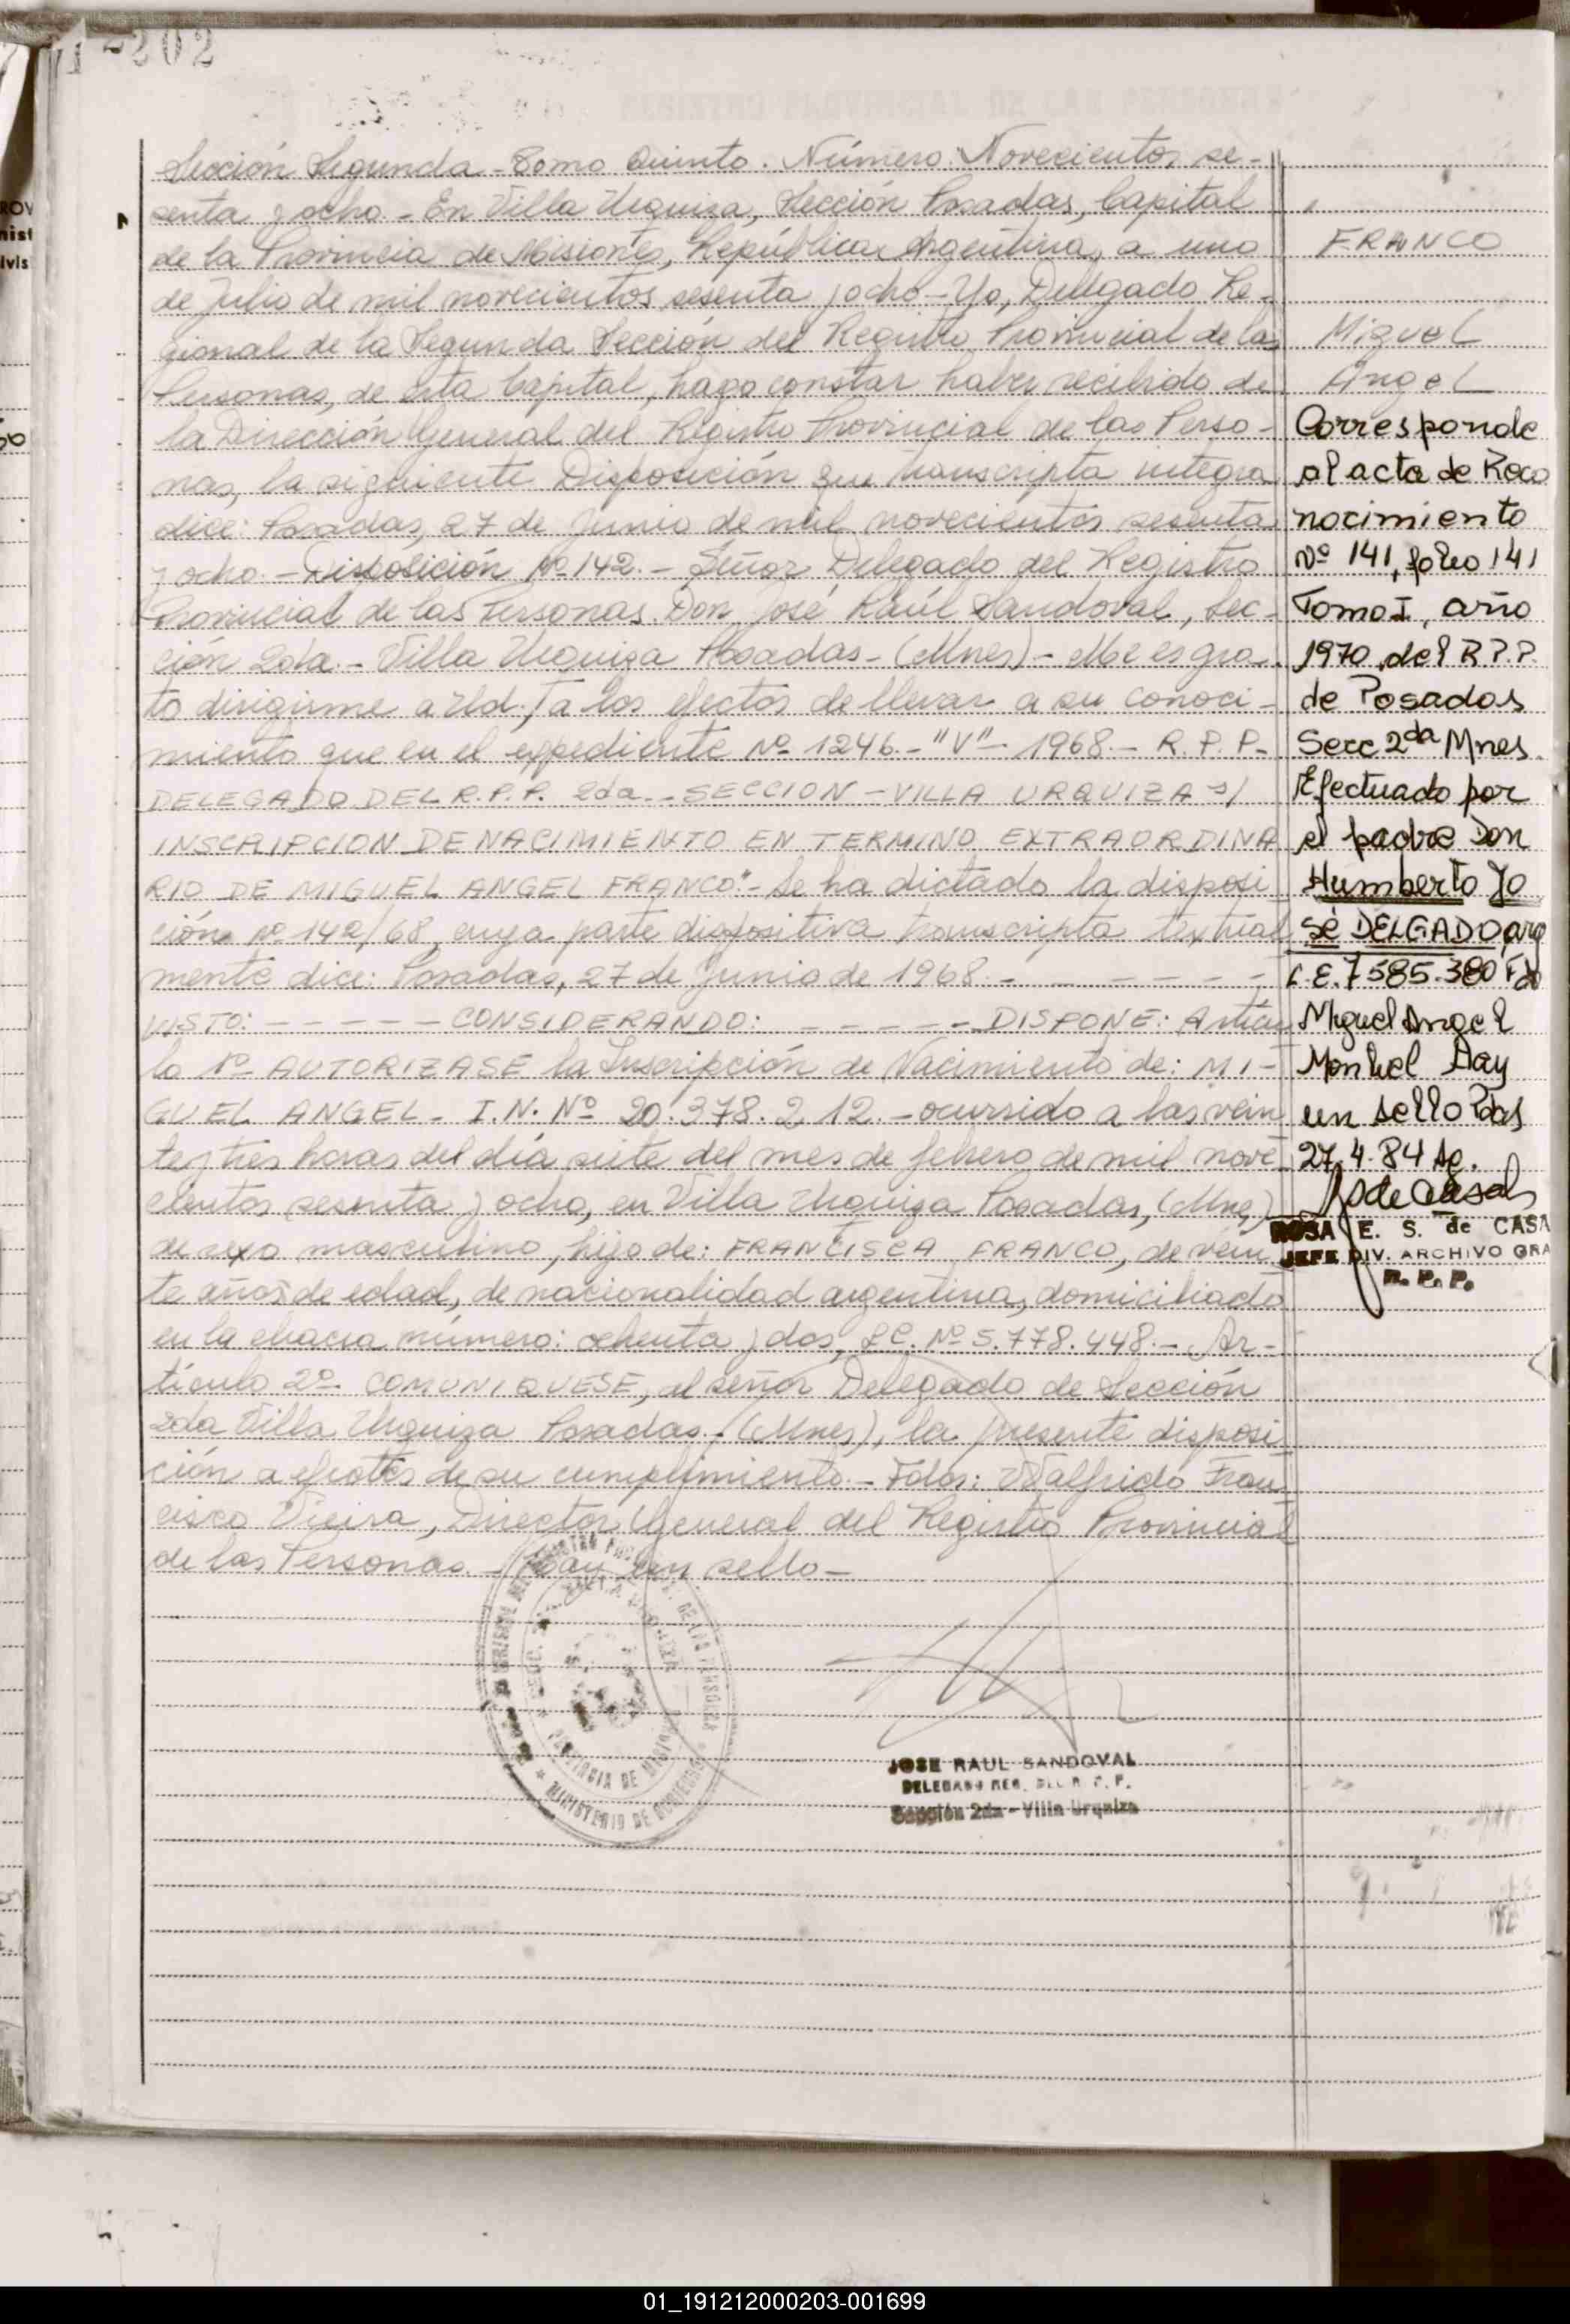 1-202
Sección Segunda - Tomo Quinto. Número: Novecientos se-
senta y ocho - En Villa Urquiza, Sección Posadas, Capital
de la Provincia de Misiones, República Argentina, a uno
de Julio de mil novecientos sesenta y ocho - Yo, Delegado Re-
gional de la Segunda Sección del Registro Provincial de las
Personas, de esta Capital, hago constar haber recibido de
la Dirección General del Registro Provincial de las Perso-
nas, la siguiente Disposición que transcripta integra
dice: Posadas, 27 de Junio de mil novecientos sesenta
y ocho. - Disposición Nº 142. - Señor Delegado del Registro
Provincial de las Personas. Don José Raúl Sandoval, Sec-
ción 2da. - Villa Urquiza Posadas - (Mnes) - Me es gra-
to dirigirme a Ud. a los efectos de llevar a su conoci-
miento que en el expediente Nº 1246.- "V" - 1968.- R.P.P-
DELEGADO DEL R.P.P. 2da.- SECCION - VILLA URQUIZA s/
INSCRIPCION DE NACIMIENTO EN TERMINO EXTRAORDINA
RIO DE MIGUEL ANGEL FRANCO" - Se ha dictado la disposi
ción Nº 142/68, cuya parte dispositiva transcripta textual
mente dice: Posadas, 27 de Junio de 1968. - - - - - -
VISTO: - - - - - CONSIDERANDO: - - - - - DISPONE: Articu
lo 1º AUTORIZASE la Inscripción de Nacimiento de: MI-
GUEL ANGEL - I.N. Nº 20.378.212.- ocurrido a las vein
te y tres horas del día siete del mes de febrero de mil nove
cientos sesenta y ocho, en Villa Urquiza Posadas, (Mnes)
de sexo masculino, hijo de: FRANCISCA FRANCO, de vein
te años de edad, de nacionalidad argentina, domiciliada
en la chacra número: ochenta y dos, L.C. Nº 5.778.448.- Ar-
tículo 2º COMUNIQUESE, al señor Delegado de Sección
2da Villa Urquiza Posadas - (Mnes), la presente disposi
ción a efectos de su cumplimiento. - Fdos: Walfrido Fran
cisco Vieira, Director General del Registro Provincial
de las Personas. - Hay un sello -
FRANCO
Miguel
Angel
Corresponde
al acta de Reco
nocimiento
Nº 141, folio 141
Tomo I, año
1970, del R.P.P.
de Posadas
Secc 2da Mnes.
Efectuado por
el padre Don
Humberto Jo
sé DELGADO, arg
L.E. 7585.380 Fdo
Miguel Angel
Montiel Hay
un sello Pdas
27.4.84 Ag.
ROSA E. S. de CASA
JEFE DIV. ARCHIVO GRA
R. P. P.
MINISTERIO DE GOBIERNO
PROVINCIA DE MISIONES
JOSE RAUL SANDOVAL
DELEGADO REG. DEL R. P. P.
Sección 2da - Villa Urquiza
01_191212000203-001699